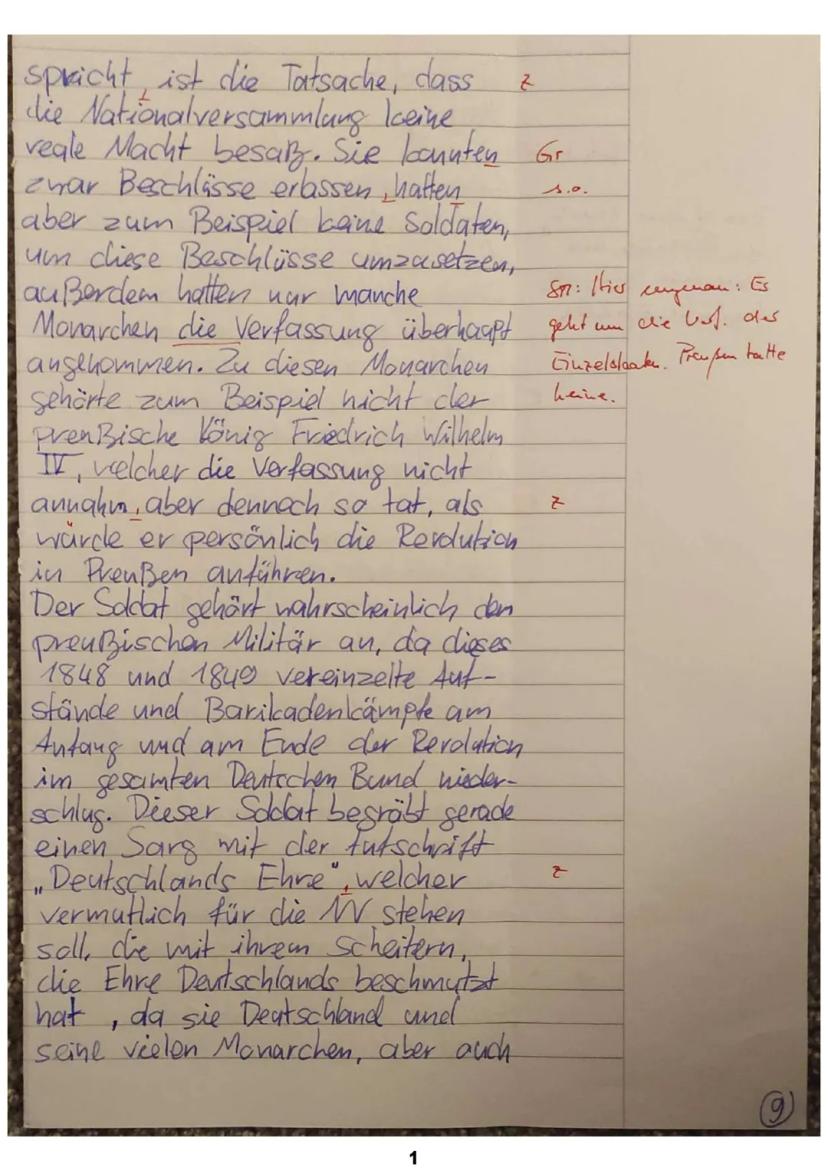 spricht, ist die Tatsache, dass z
die Nationalversammlung keine
reale Macht besaß. Sie konnten Gr
zwar Beschlüsse erlassen, hatten s.o.
aber zum Beispiel keine Soldaten,
um diese Beschlüsse umzusetzen,
außerdem hatten nur manche Hier ungenau: Es
Monarchen die Verfassung überhaupt geht um die Verf. der
angenommen. Zu diesen Monarchen Einzelstaaten. Preußen hatte
gehörte zum Beispiel nicht der keine.
preußische König Friedrich Wilhelm
IV, welcher die Verfassung nicht
annahm, aber dennoch so tat, als z
würde er persönlich die Revolution
in Preußen anführen.
Der Soldat gehört wahrscheinlich den
preußischen Militär an, da dieses
1848 und 1849 vereinzelte Auf-
stände und Barikadenkämpfe am
Anfang und am Ende der Revolution
im gesamten Deutschen Bund nieder-
schlug. Dieser Soldat begräbt gerade
einen Sarg mit der Aufschrift
„Deutschlands Ehre", welcher z
vermutlich für die NV stehen
soll, die mit ihrem Scheitern,
die Ehre Deutschlands beschmutzt
hat, da sie Deutschland und
seine vielen Monarchen, aber auch
9
1